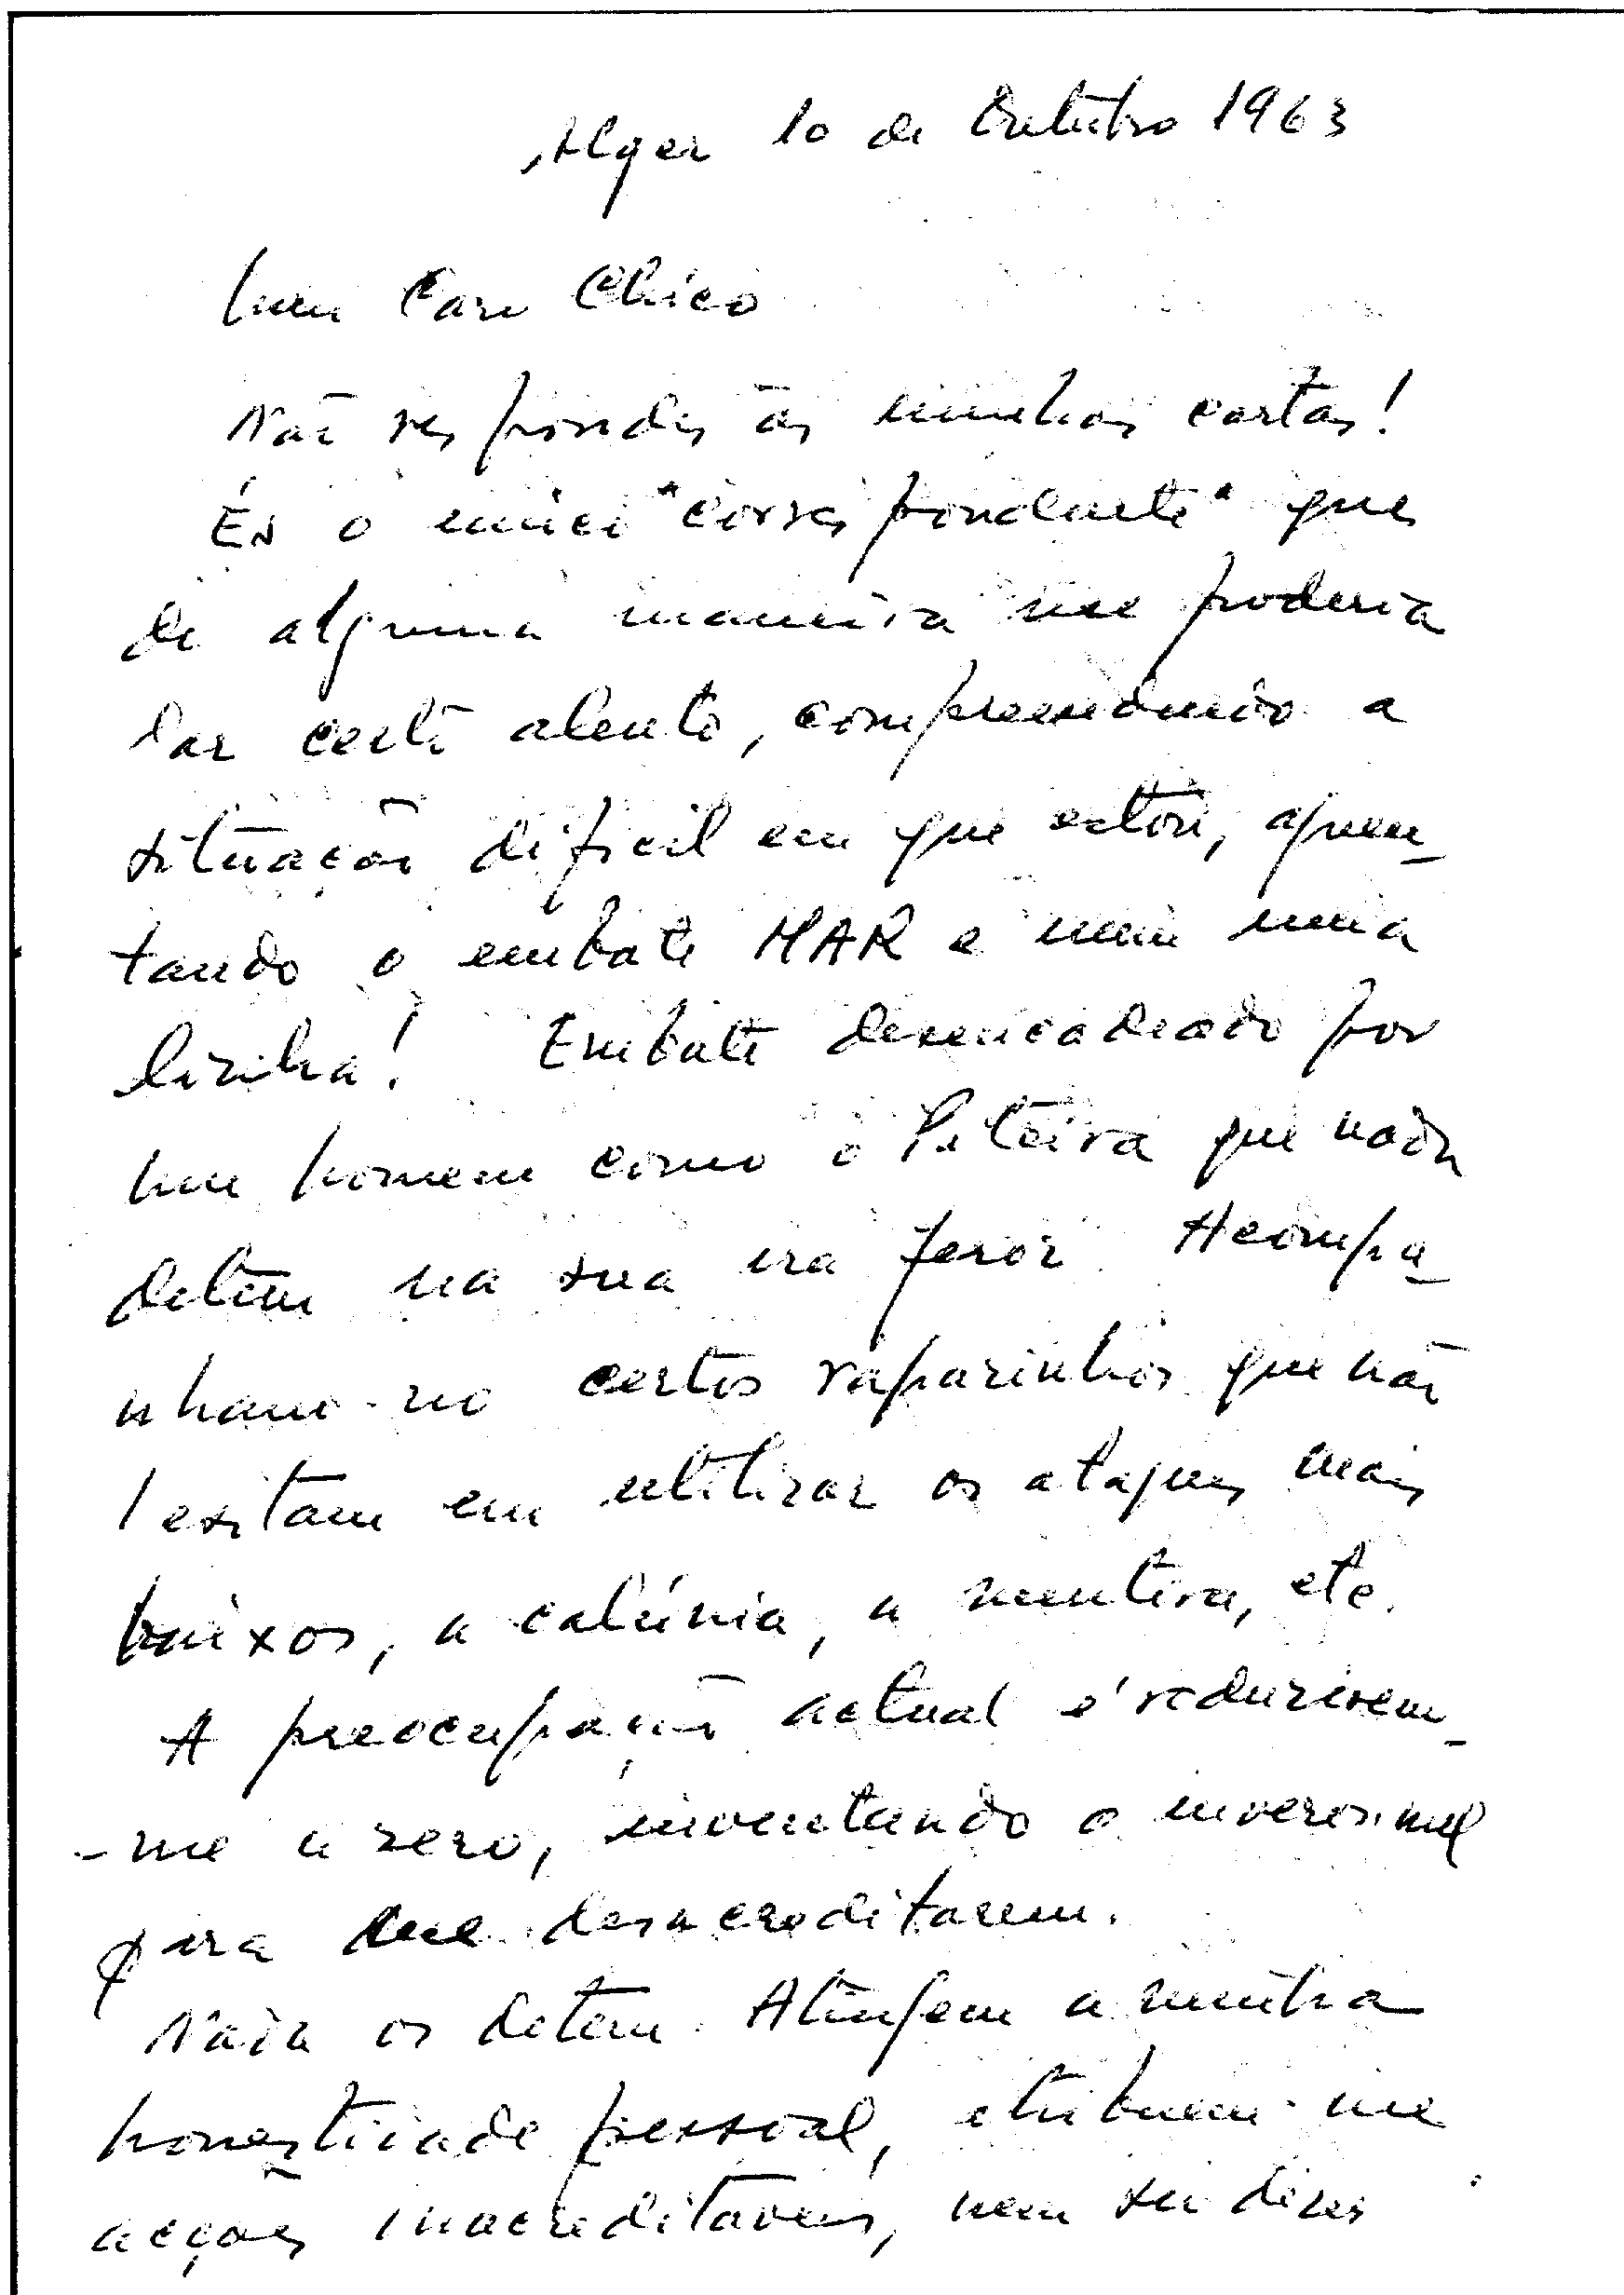 Alger 10 de Outubro 1963
Meu Caro Chico
Não respondes às minhas cartas!
És o unico "correspondente" que
de alguma maneira me poderia
dar certo alento, compreendendo a
situação dificil em que estou, aguen-
tando o embate MAR e nem uma
linha! Embate desencadeado por
um homem como o Piteira que nada
detem na sua ira feroz. Acompa-
nham-no certos rapazinhos que não
hesitam em utilizar os ataques mais
baixos, a calúnia, a mentira, etc.
A preocupação actual é reduzirem-
-me a zero, inventando o inverosimel
para me desacreditarem.
Nada os detem. Atingem a minha
honestidade pessoal, atribuem-me
acções inacreditaveis, nem sei dizer